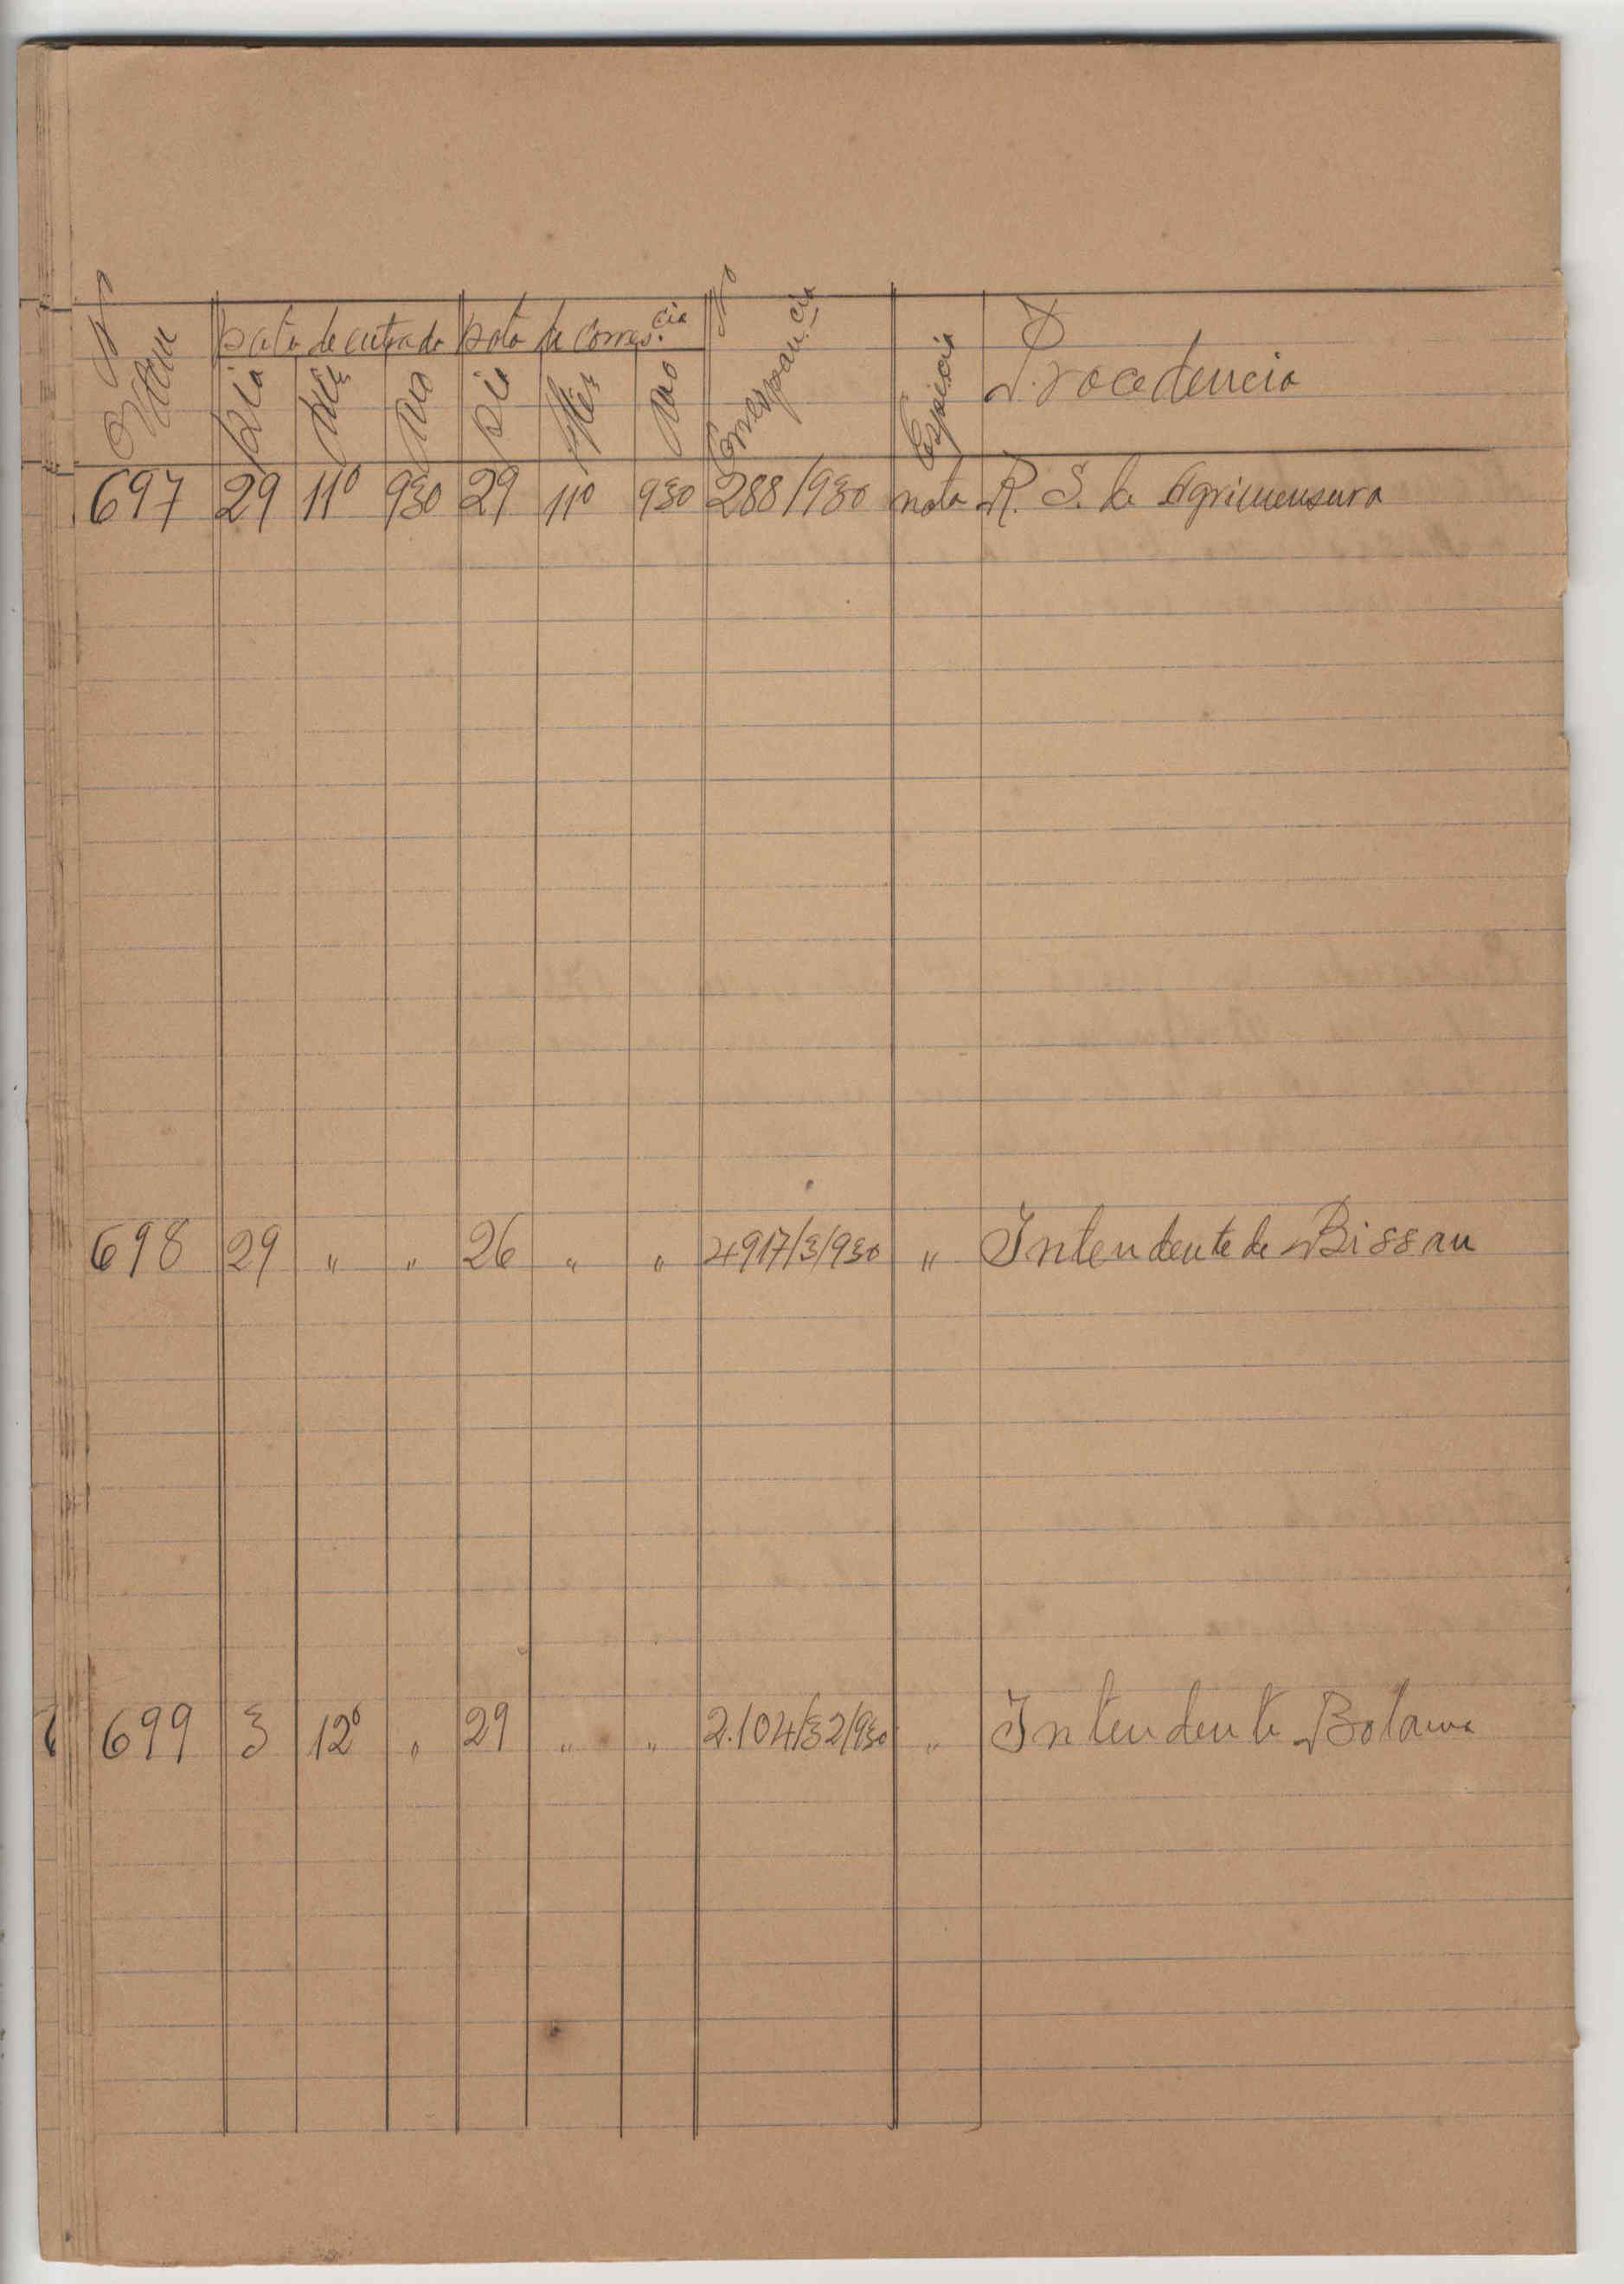 Nº Ordem Data de entrada Data de Corres.cia Nº Correspon.cia Especie Procedencia
Dia Mês Ano Dia Mês Ano
697 29 11º 930 29 11º 930 288/930 nota R. S. de Agrimensura
698 29 " " 26 " " 4917/3/930 " Intendente de Bissau
699 3 12º " 29 " " 2.104/32/930 " Intendente Bolama